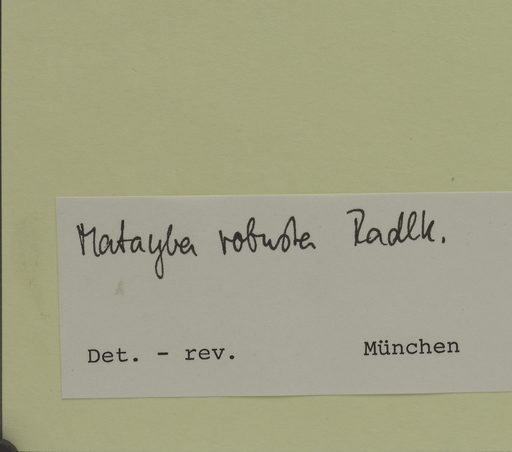 Matayba robusta Radlk.
Det. - rev. München